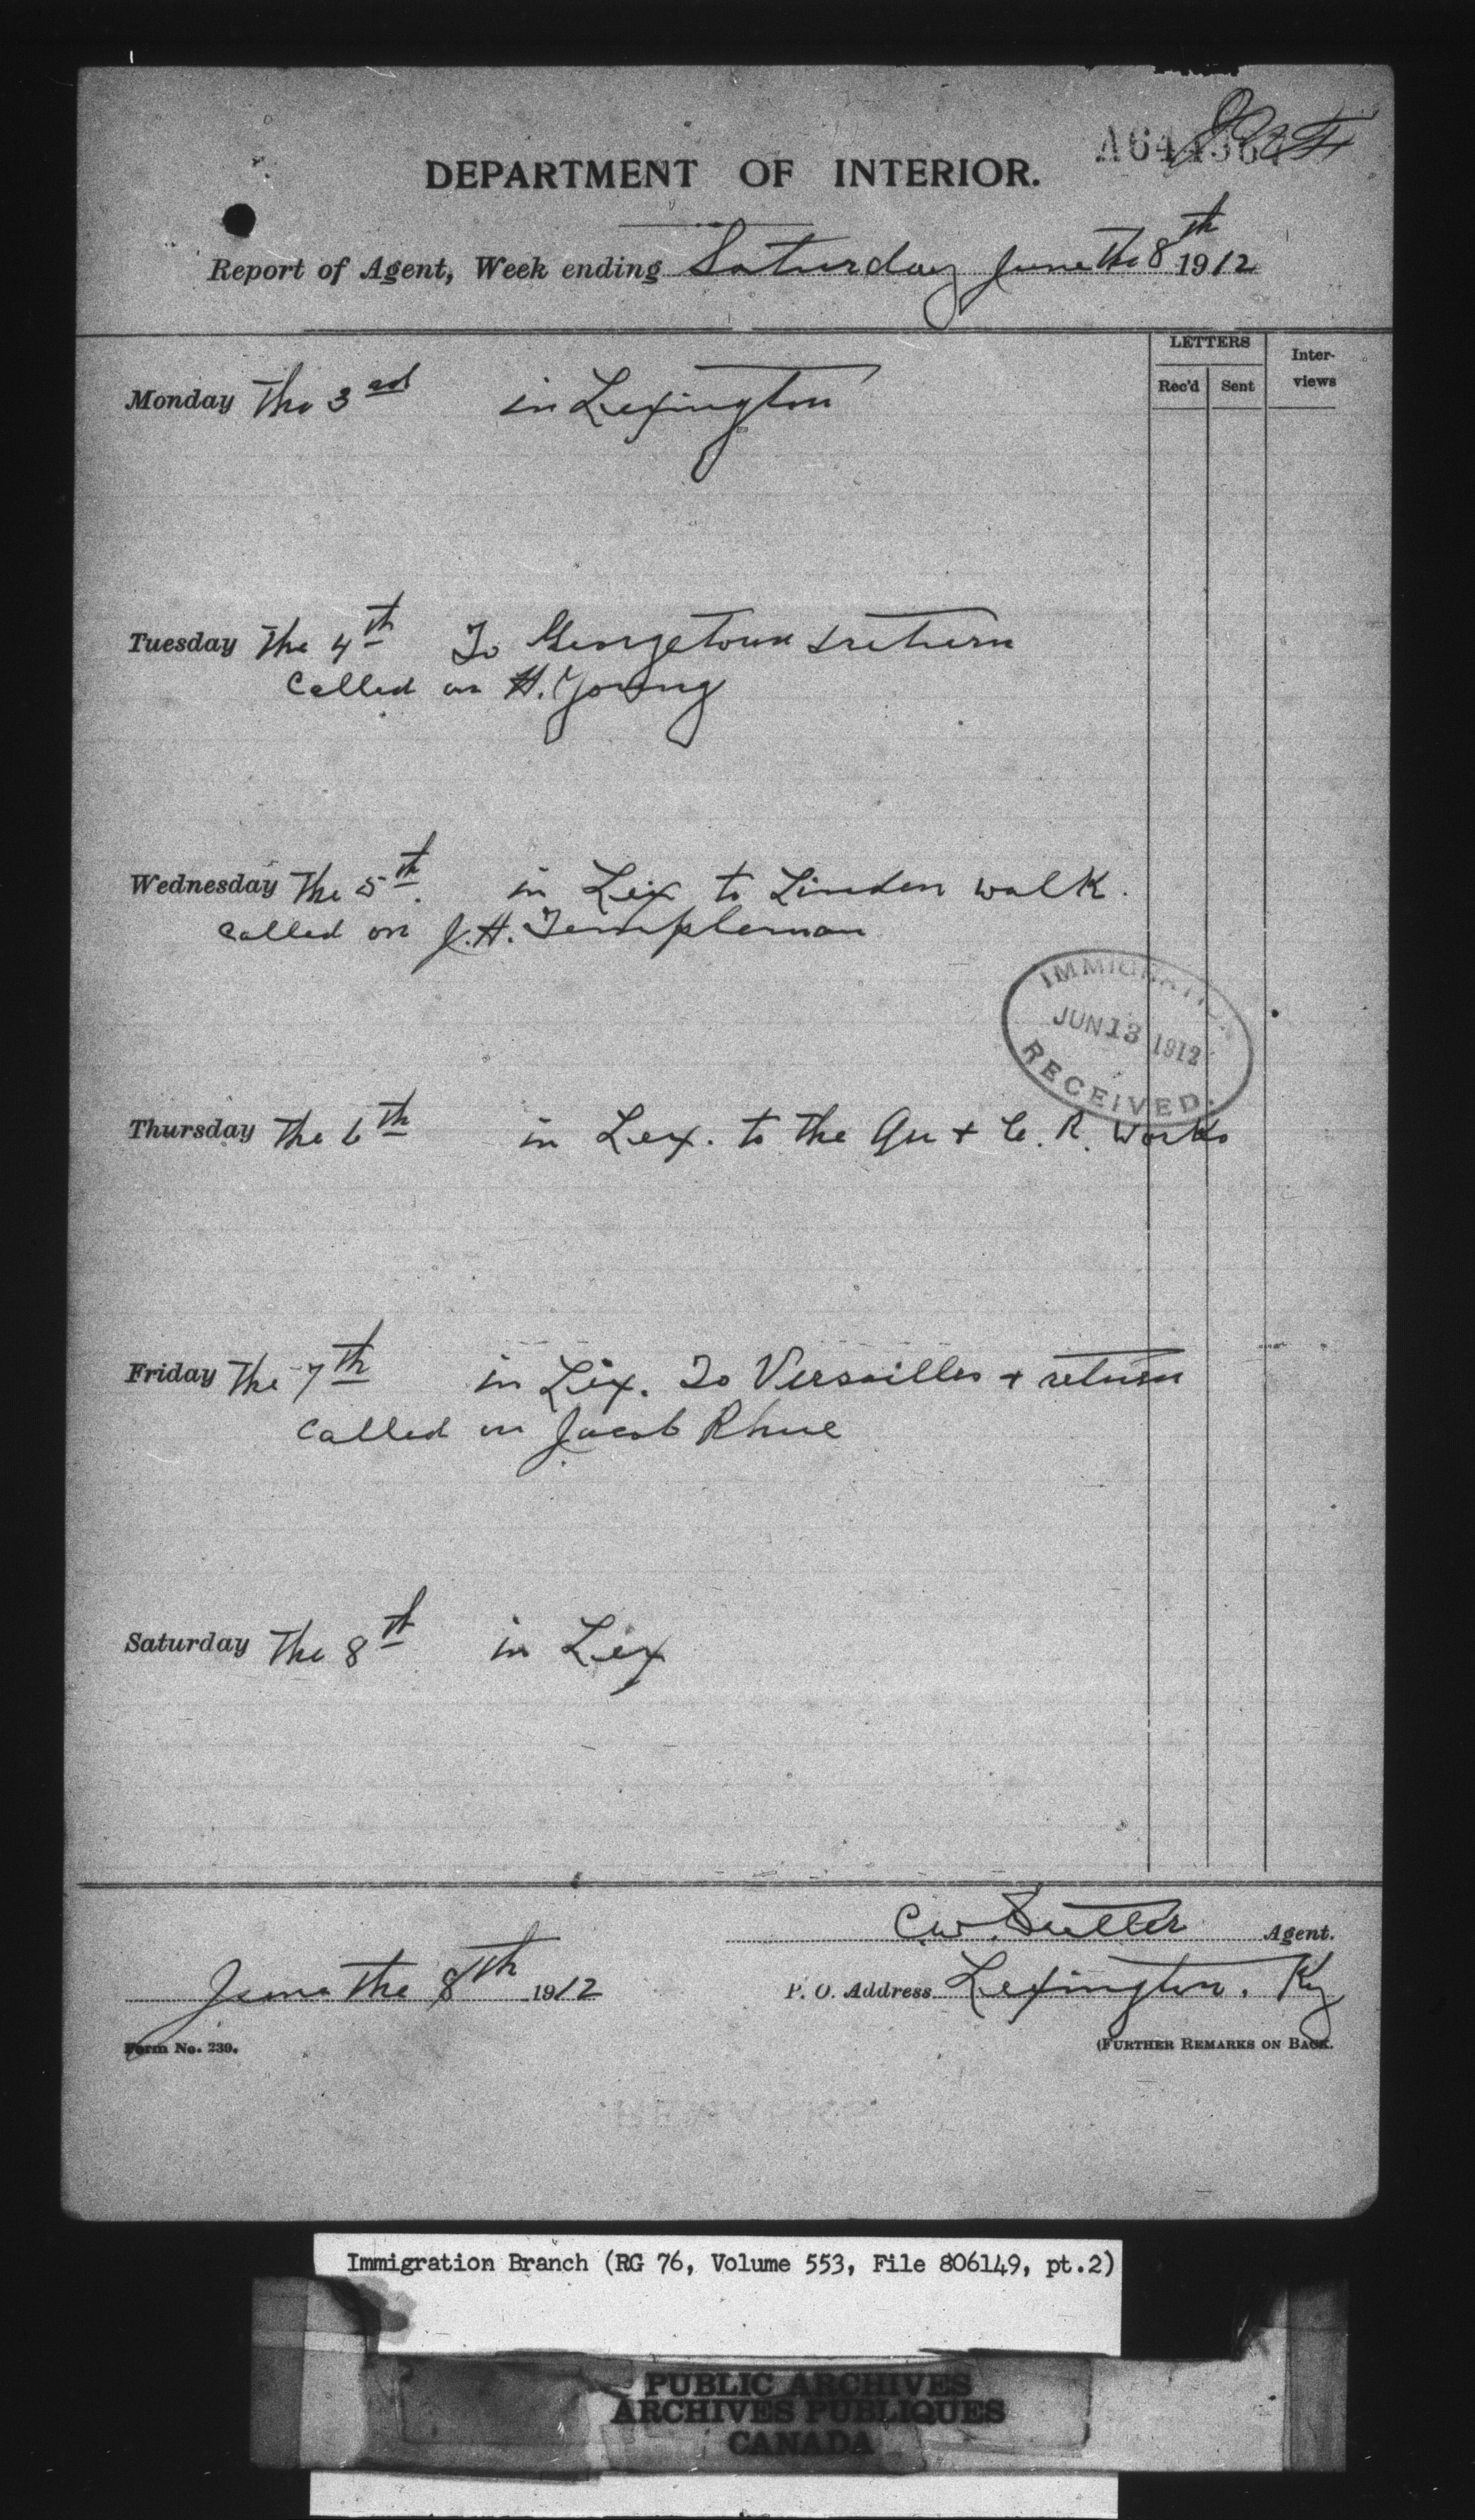 DEPARTMENT OF INTERIOR.
Report of Agent, Week ending Saturday June the 8th 1912
LETTERS
Rec'd Sent
Inter-
views
Monday the 3rd in Lexington
Tuesday the 4th To Georgetown & return
Called on H. Young
Wednesday the 5th. in Lex to Linden walk.
Called on J.H. Templeman
IMMIGRATION
JUN 13 1912
RECEIVED.
Thursday the 6th in Lex. to the & C. R. Works
Friday the 7th in Lex. To Versailles + return
Called on Jacob Rhue
Saturday the 8th in Lex
C.W. Agent.
June the 8th 1912
P. O. Address Lexington, Ky
Form No. 239.
(FURTHER REMARKS ON BACK.
Immigration Branch (RG 76, Volume 553, File 806149, pt.2)
PUBLIC ARCHIVES
ARCHIVES PUBLIQUES
CANADA